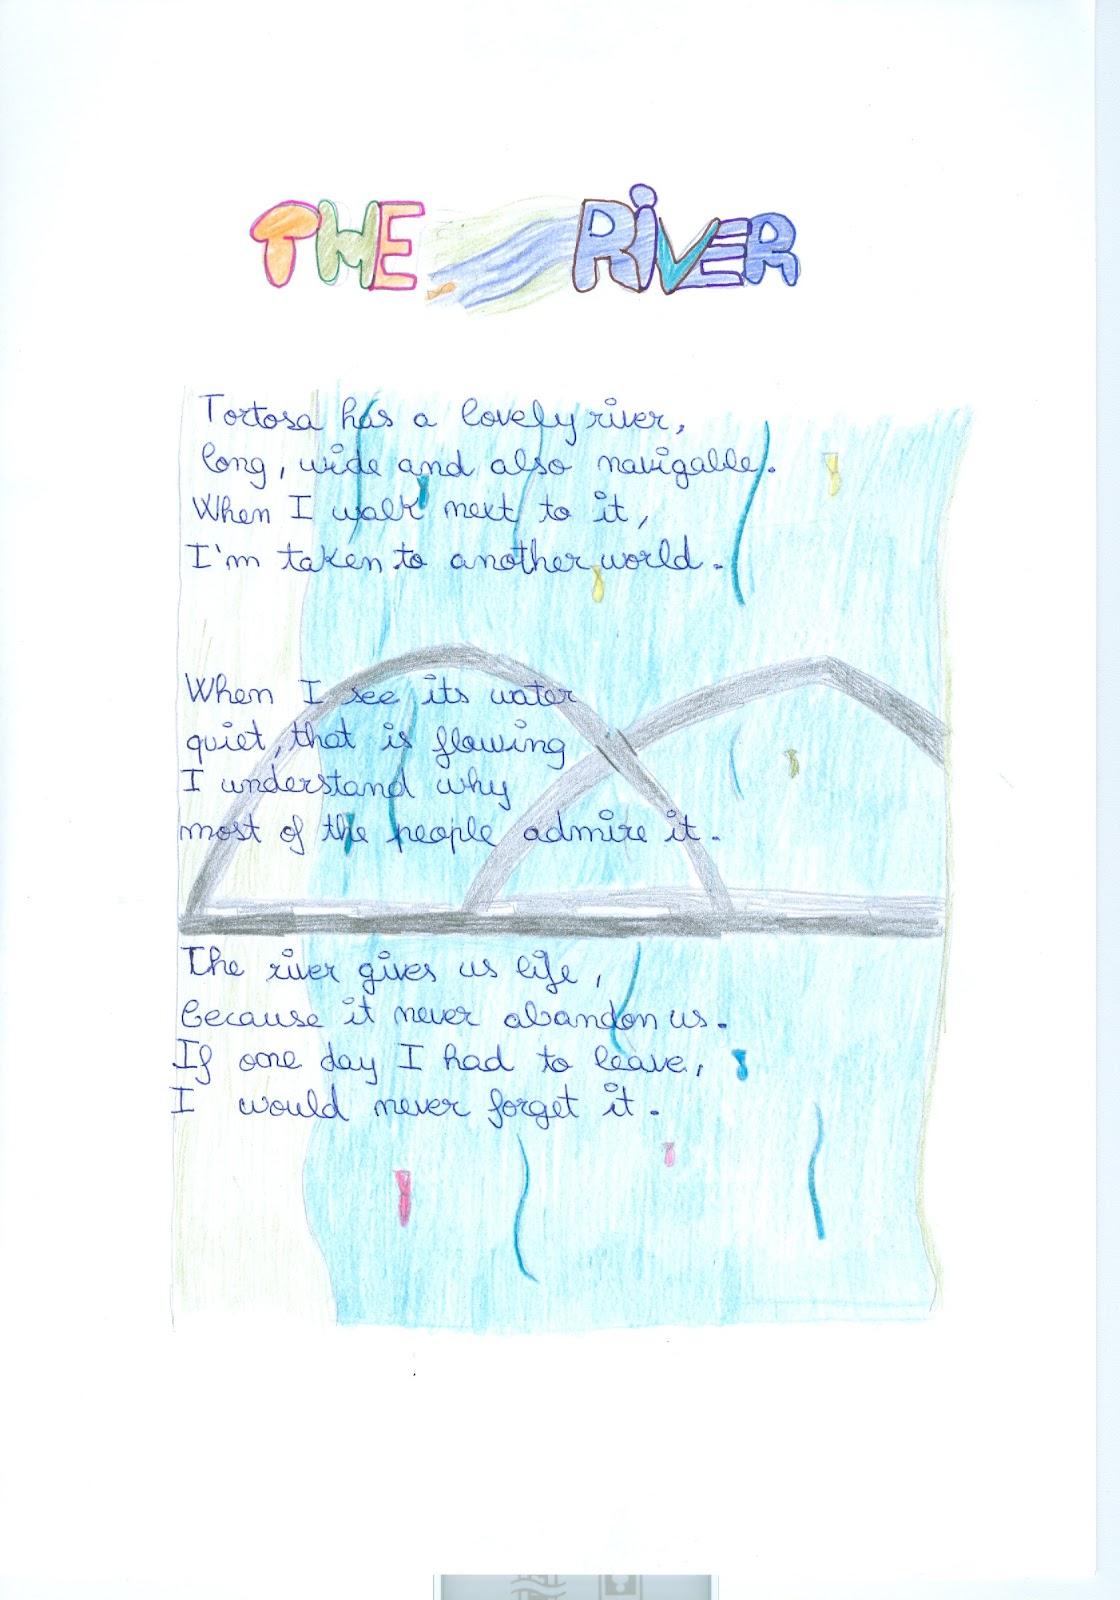 THE RIVER
Tortosa has a lovely river,
long, wide and also navigable.
When I walk next to it,
I'm taken to another world.
When I see its water
quiet, that is flowing
I understand why
most of the people admire it.
The river gives us life,
because it never abandon us.
If one day I had to leave,
I would never forget it.